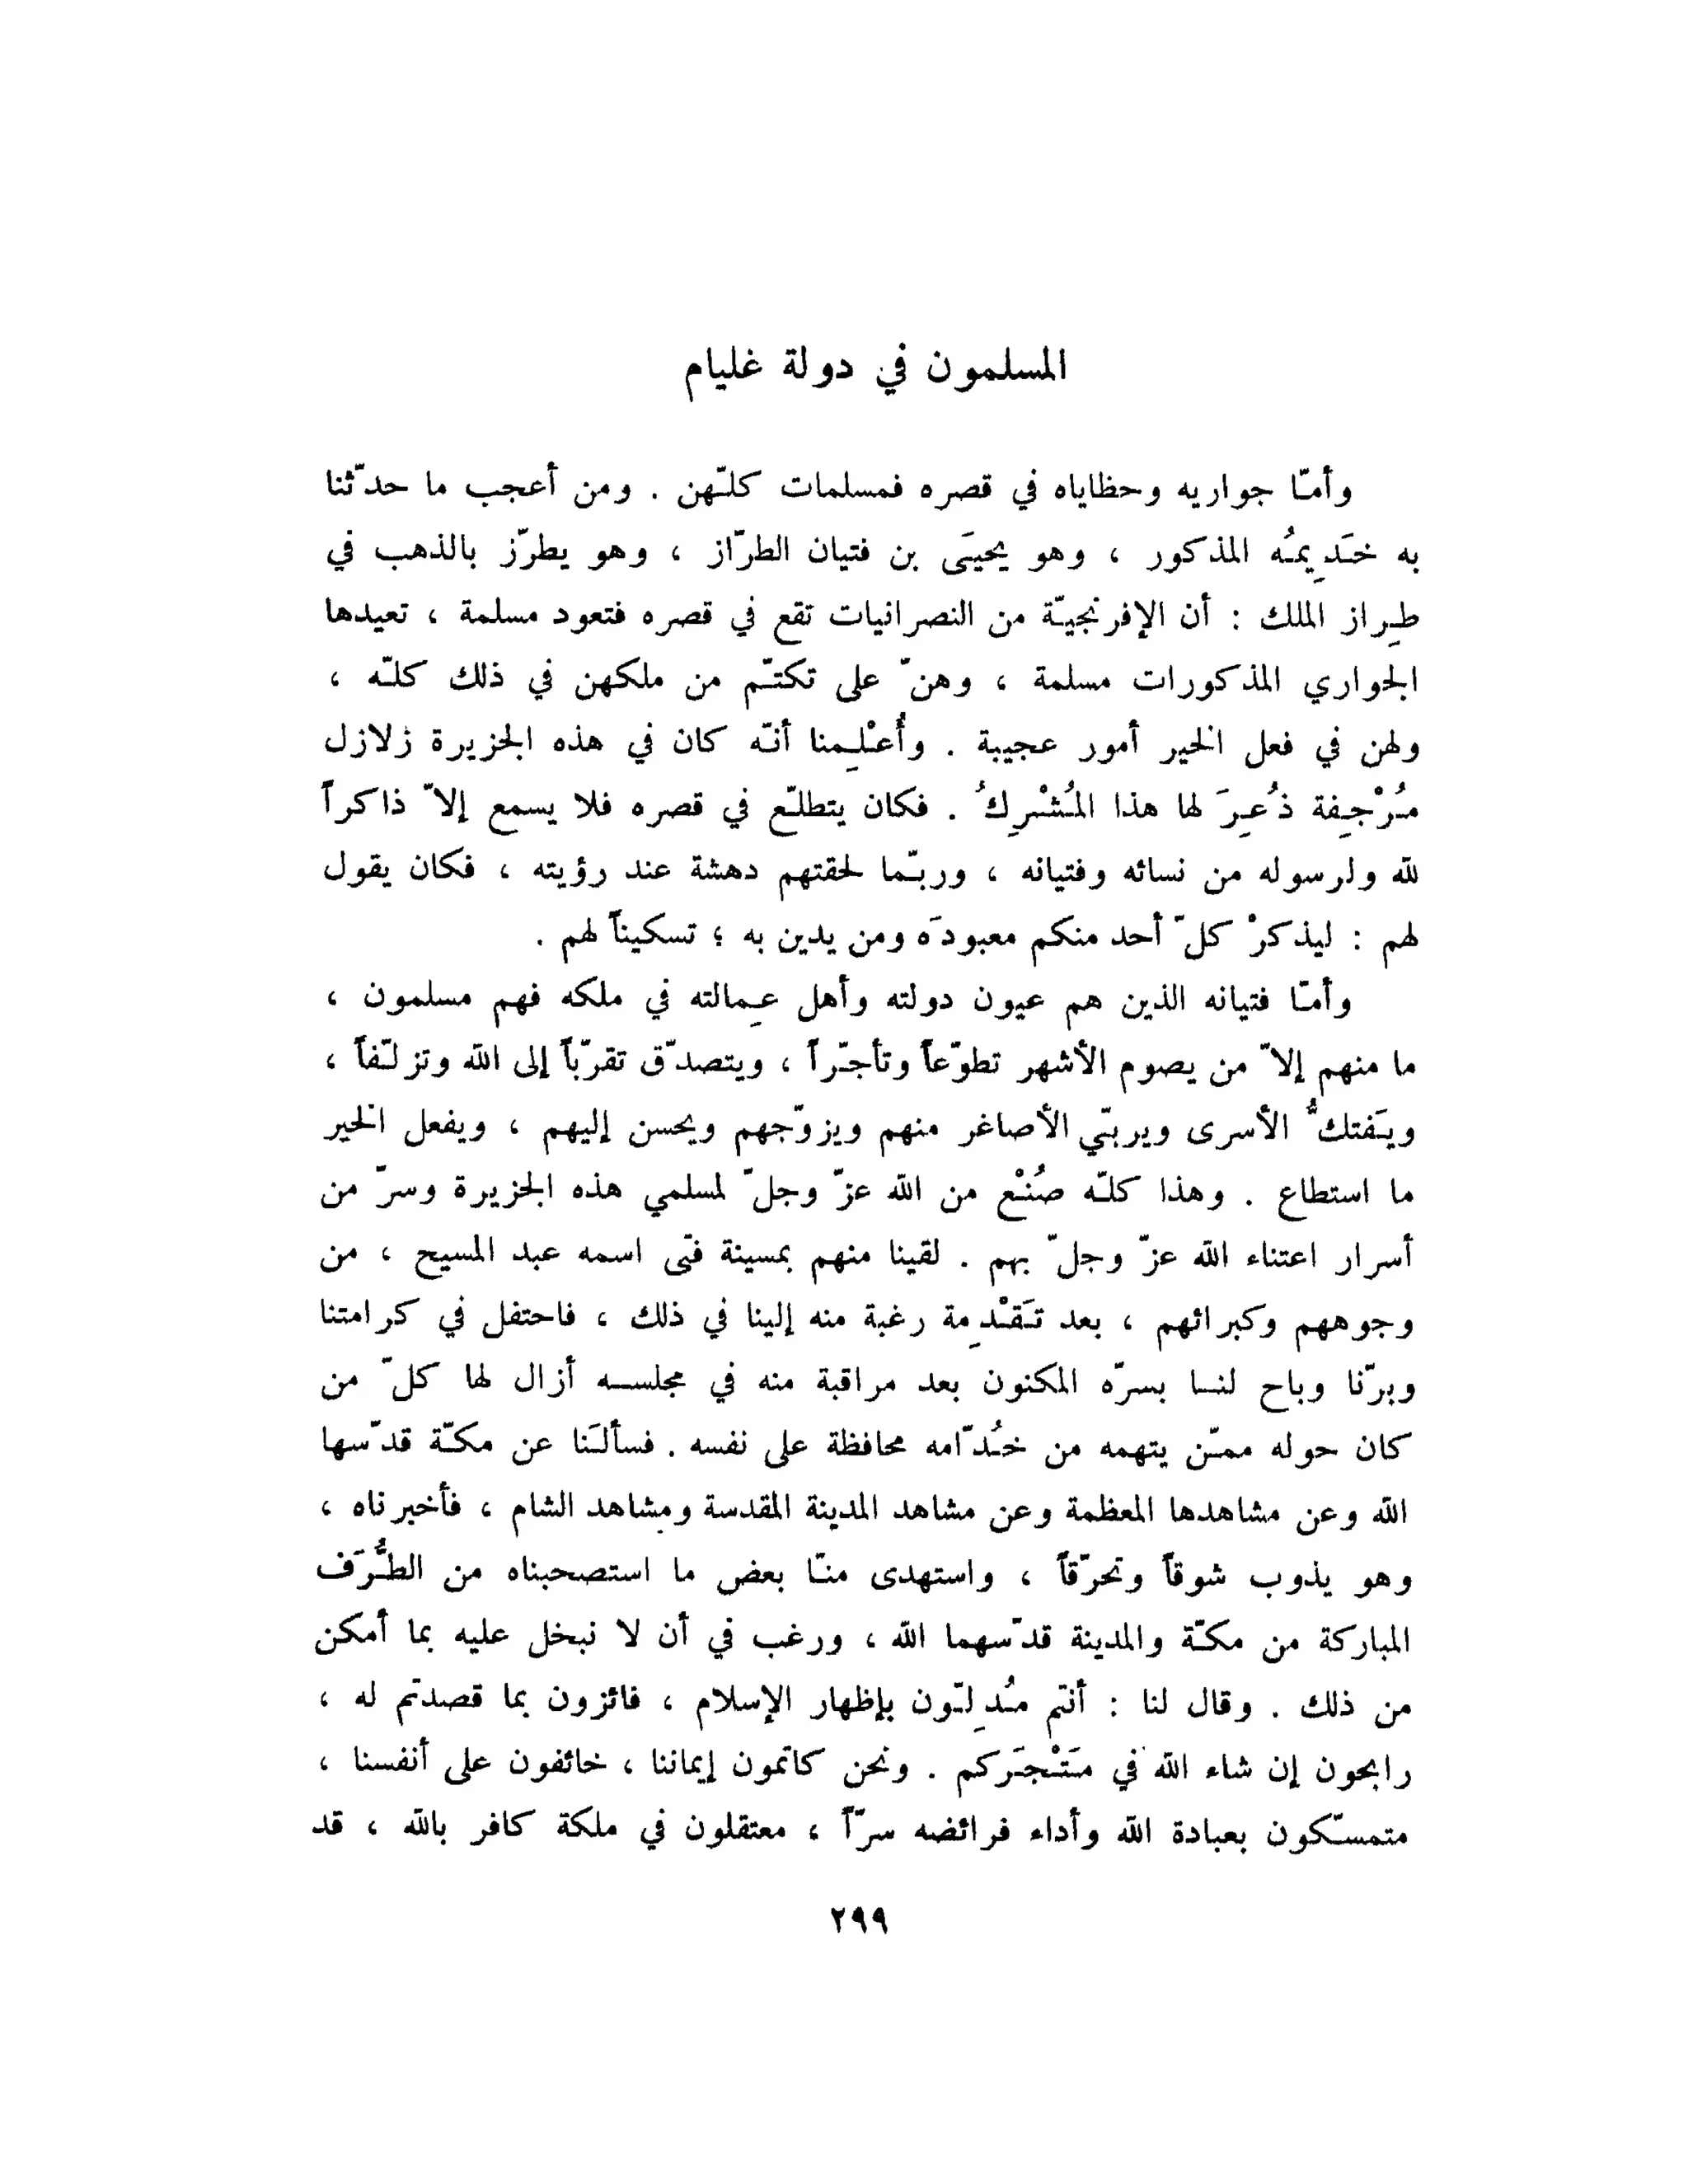 المسلمون في دولة غليام
وأمّا جواريه وحظاياه في قصره فمسلمات كلّهن . ومن أعجب ما حدّثنا
به خَدِيمُه المذكور ، وهو يحيَى بن فتيان الطرّاز ، وهو يطرّز بالذهب في
طِراز الملك : أن الإفرنجيّة من النصرانيات تقع في قصره فتعود مسلمة ، تعيدها
الجواري المذكورات مسلمة ، وهنّ على تكتّم من ملكهن في ذلك كلّه ،
ولهن في فعل الخير أمور عجيبة . وأُعْلِمنا أنّه كان في هذه الجزيرة زلازل
مُرْجِفة ذُعِرَ لها هذا المُشْرِكُ . فكان يتطلّع في قصره فلا يسمع إلاّ ذاكراً
لله ولرسوله من نسائه وفتيانه ، وربّما لحقتهم دهشة عند رؤيته ، فكان يقول
لهم : ليذكرْ كلّ أحد منكم معبودَه ومن يدين به ؛ تسكيناً لهم .
وأمّا فتيانه الذين هم عيون دولته وأهل عِمالته في ملكه فهم مسلمون ،
ما منهم إلاّ من يصوم الأشهر تطوّعاً وتأجّراً ، ويتصدّق تقرّباً إلى الله وتزلّفاً ،
ويَفتكُّ الأسرى ويربّي الأصاغر منهم ويزوّجهم ويحسن إليهم ، ويفعل الخير
ما استطاع . وهذا كلّه صُنْع من الله عزّ وجلّ لمسلمي هذه الجزيرة وسرّ من
أسرار اعتناء الله عزّ وجلّ بهم . لقينا منهم بمسينة فتًى اسمه عبد المسيح ، من
وجوههم وكبرائهم ، بعد تَقْدِمة رغبة منه إلينا في ذلك ، فاحتفل في كرامتنا
وبرّنا وباح لنا بسرّه المكنون بعد مراقبة منه في مجلسه أزال لها كلّ من
كان حوله ممّن يتهمه من خُدّامه محافظة على نفسه . فسألَنا عن مكّة قدّسها
الله وعن مشاهدها المعظمة وعن مشاهد المدينة المقدسة ومشاهد الشام ، فأخبرناه ،
وهو يذوب شوقاً وتحرّقاً ، واستهدى منّا بعض ما استصحبناه من الطُّرَف
المباركة من مكّة والمدينة قدّسهما الله ، ورغب في أن لا نبخل عليه بما أمكن
من ذلك . وقال لنا : أنتم مُدِلّون بإظهار الإسلام ، فائزون بما قصدتم له ،
رابحون إن شاء الله في مَتْجَركم . ونحن كاتمون إيماننا ، خائفون على أنفسنا ،
متمسّكون بعبادة الله وأداء فرائضه سرّاً ، معتقلون في ملكة كافر بالله ، قد
٢٩٩